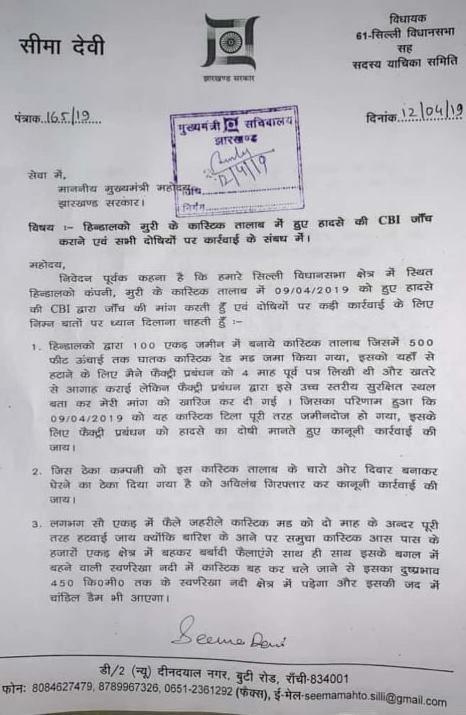 सीमा देवी
झारखण्ड सरकार
विधायक
61-सिल्ली विधानसभा
सह
सदस्य याचिका समिति
पत्रांक 165/19
दिनांक 12/04/19
मुख्यमंत्री सचिवालय
झारखण्ड
12/4/19
सेवा में,
माननीय मुख्यमंत्री महोदय
झारखण्ड सरकार।
विषय :- हिन्डालको मुरी के कास्टिक तालाब में हुए हादसे की CBI जाँच
कराने एवं सभी दोषियों पर कार्रवाई के संबध में।
महोदय,
निवेदन पूर्वक कहना है कि हमारे सिल्ली विधानसभा क्षेत्र में स्थित
हिन्डालको कंपनी, मुरी के कास्टिक तालाब में 09/04/2019 को हुए हादसे
की CBI द्वारा जाँच की मांग करती हुँ एवं दोषियों पर कड़ी कार्रवाई के लिए
निम्न बातों पर ध्यान दिलाना चाहती हुँ :-
1. हिन्डालको द्वारा 100 एकड़ जमीन में बनाये कास्टिक तालाब जिसमें 500
फीट ऊंचाई तक घातक कास्टिक रेड मड जमा किया गया, इसको यहाँ से
हटाने के लिए मैने फैक्ट्री प्रबंधन को 4 माह पूर्व पत्र लिखी थी और खतरे
से आगाह कराई लेकिन फैक्ट्री प्रबंधन द्वारा इसे उच्च स्तरीय सुरक्षित स्थल
बता कर मेरी मांग को खारिज कर दी गई । जिसका परिणाम हुआ कि
09/04/2019 को यह कास्टिक टिला पूरी तरह जमीनदोज हो गया, इसके
लिए फैक्ट्री प्रबंधन को हादसे का दोषी मानते हुए कानूनी कार्रवाई की
जाय।
2. जिस ठेका कम्पनी को इस कास्टिक तालाब के चारो ओर दिवार बनाकर
घेरने का ठेका दिया गया है को अविलंब गिरफ्तार कर कानूनी कार्रवाई की
जाय।
3. लगभग सौ एकड़ में फैले जहरीले कास्टिक मड को दो माह के अन्दर पूरी
तरह हटवाई जाय क्योंकि बारिश के आने पर समुचा कास्टिक आस पास के
हजारों एकड़ क्षेत्र में बहकर बर्बादी फैलाएंगे साथ ही साथ इसके बगल में
बहने वाली स्वर्णरेखा नदी में कास्टिक बह कर चले जाने से इसका दुष्प्रभाव
450 कि०मी० तक के स्वर्णरेखा नदी क्षेत्र में पड़ेगा और इसकी जद में
चांडिल डैम भी आएगा।
Seema Devi
डी/2 (न्यू) दीनदयाल नगर, बुटी रोड, राँची-834001
फोनः 8084627479, 8789967326, 0651-2361292 (फैक्स), ई-मेल-seemamahto.silli@gmail.com